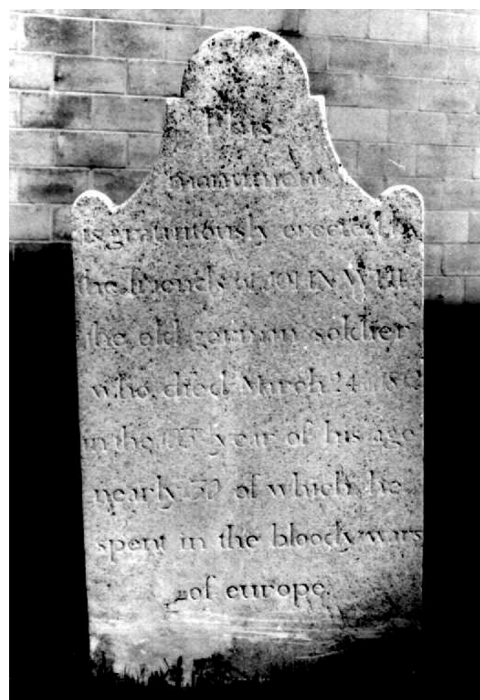 This
monument
is gratuitously erected by
the friends of JOHN WEIL
the old german soldier
who died March 24
in the year of his age
nearly 50 of which he
spent in the bloody wars
of europe.